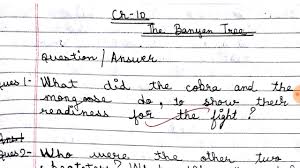 Ch-10
The Banyan Tree
Question / Answer
Ques 1- What did the cobra and the
mongoose do, to show their
readiness for the fight ?
Ans 1
Ques 2- Who were the other two